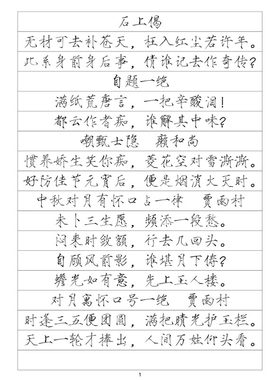 石上偈
无材可去补苍天，枉入红尘若许年。
此系身前身后事，倩谁记去作奇传？
自题一绝
满纸荒唐言，一把辛酸泪！
都云作者痴，谁解其中味？
嘲甄士隐 癞和尚
惯养娇生笑你痴，菱花空对雪澌澌。
好防佳节元宵后，便是烟消火灭时。
中秋对月有怀口占一律 贾雨村
未卜三生愿，频添一段愁。
闷来时敛额，行去几回头。
自顾风前影，谁堪月下俦？
蟾光如有意，先上玉人楼。
对月寓怀口号一绝 贾雨村
时逢三五便团圆，满把晴光护玉栏。
天上一轮才捧出，人间万姓仰头看。
1